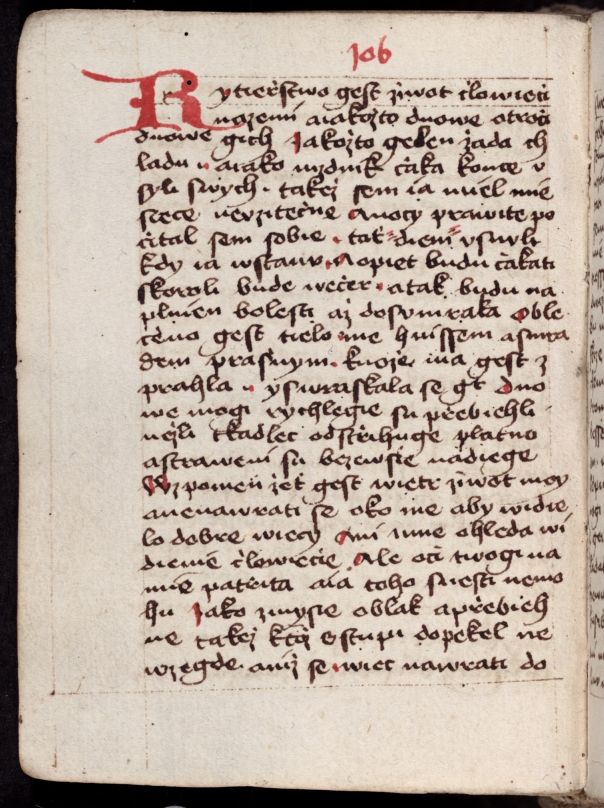 Job
Rytierstwo gest ziwot cźlowieci
na zemi a iakożto dnowe otroci
dnowe gich Jakożto geden żada ch
ladu a iako nadnik cżaka konce v
syli swych takeż sem ia miel mie
siece nevziteċne A nocy prawite po
cital sem sobie tak diem vsnuli
kdy ia wstanu A opiet budu cżakati
skoroli bude wecżer a tak budu na
plnien bolesti aż do sumraka Oble
cżeno gest tielo me hnissem a smra
dem prasnym kuoże ma gest z
prahla y swraskala se gt Dno
we mogi rychlegie su przebiehli
neżli tkadlec odstrzihuge platno
a straweni su bezewsie nadiege
Wzpomeń żet gest wietr żiwot moy
a nenawrati se oko me aby widie
lo dobre wiecy Ani mne ohleda wi
dienie cżlowiecie Ale oci twogi na
mie patrzita a ia toho snesti nemo
hu Jako zmysie oblak a przebieh
ne takeż ktoż sstupi do pekel ne
wzegde aniż se wiec nawrati do